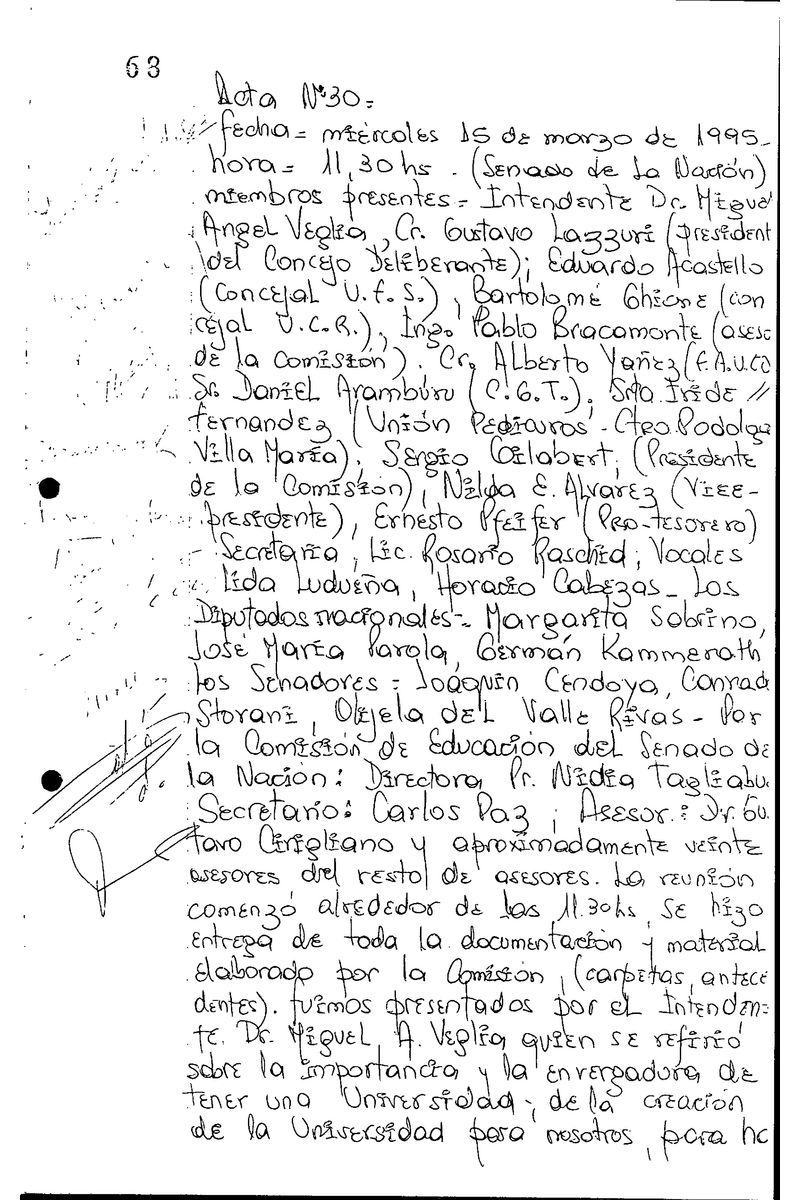 63
Acta N°30=
fecha= miércoles 15 de marzo de 1995-
hora= 11,30 hs. (Senado de La Nación)
miembros presentes= Intendente Dr. Miguel
Angel Veglia, Cr. Gustavo Lazzuri (president
del Concejo Deliberante); Eduardo Acastello
(Concejal U.f.S.), Bartolomé Ghione (con
cejal U.C.R.), Ing. Pablo Bracamonte (aseso
de la comisión). Cr. Alberto Yañez (F.A.U.CO
Sr. Daniel Aramburu (C.G.T.), Srta Iride //
fernandez (Unión Pedicuros - Ctro. Podolga
Villa María), Sergio Gilabert, (Presidente
de la Comisión), Nilda E. Alvarez (Vice-
presidente), Ernesto Pfeifer (Pro-tesorero)
Secretaria, Lic. Rosario Raschid; Vocales
Lida Ludueña, Horacio Cabezas- Los
Diputados nacionales- Margarita Sobrino,
José María Parola, Germán Kammerath
Los Senadores= Joaquín Cendoya, Conrad
Storani, Olijela del Valle Rivas- Por
la Comisión de Educación del Senado de
la Nación: Directora, Pr. Nidia Tagliabu
Secretario: Carlos Paz; Asesor: Dr. Gu
tavo Cirigliano y aproximadamente veinte
asesores del resto de asesores. La reunión
comenzó alrededor de las 11.30hs, se hizo
entrega de toda la documentación y material
elaborado por la Comisión, (carpetas, antece
dentes). fuimos presentados por el Intenden-
te. Dr. Miguel A. Veglia quien se refirió
sobre la importancia y la envergadura de
tener una Universidad, de la creación
de la Universidad para nosotros, para ho